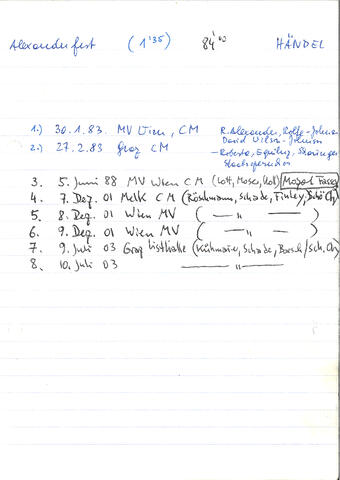 Alexanderfest (1'35) 84'00 HÄNDEL
1.) 30.1.83. MV Wien, CM R. Alexander, Rolfe-Johnson
David Wilson-Johnson
2.) 27.2.83 Graz CM – Roberta, Equiluz, Tharinger
Staatsopernchor
3. 5. Juni 88 MV Wien CM (Lott, Moser, Holl)
4. 7. Dez. 01 Melk CM (Röschmann, Schade, Finley, Schö Ch)
5. 8. Dez. 01 Wien MV ( — " — )
6. 9. Dez. 01 Wien MV ( — " — )
7. 9. Juli 03 Graz Listhalle (Kühmeier, Schade, Boesch/Sch. Ch)
8. 10. Juli 03 — " —